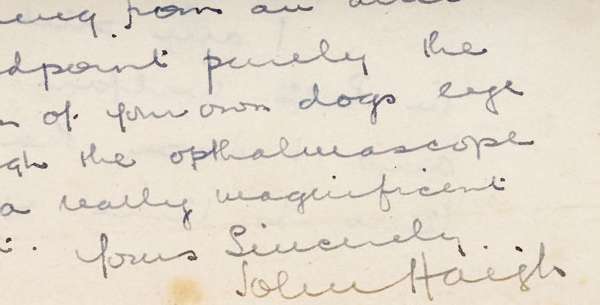 from an
dpoint purely the
of your own dogs eye
gh the opthalmascope
a really magnificent
yours Sincerely
John Haigh